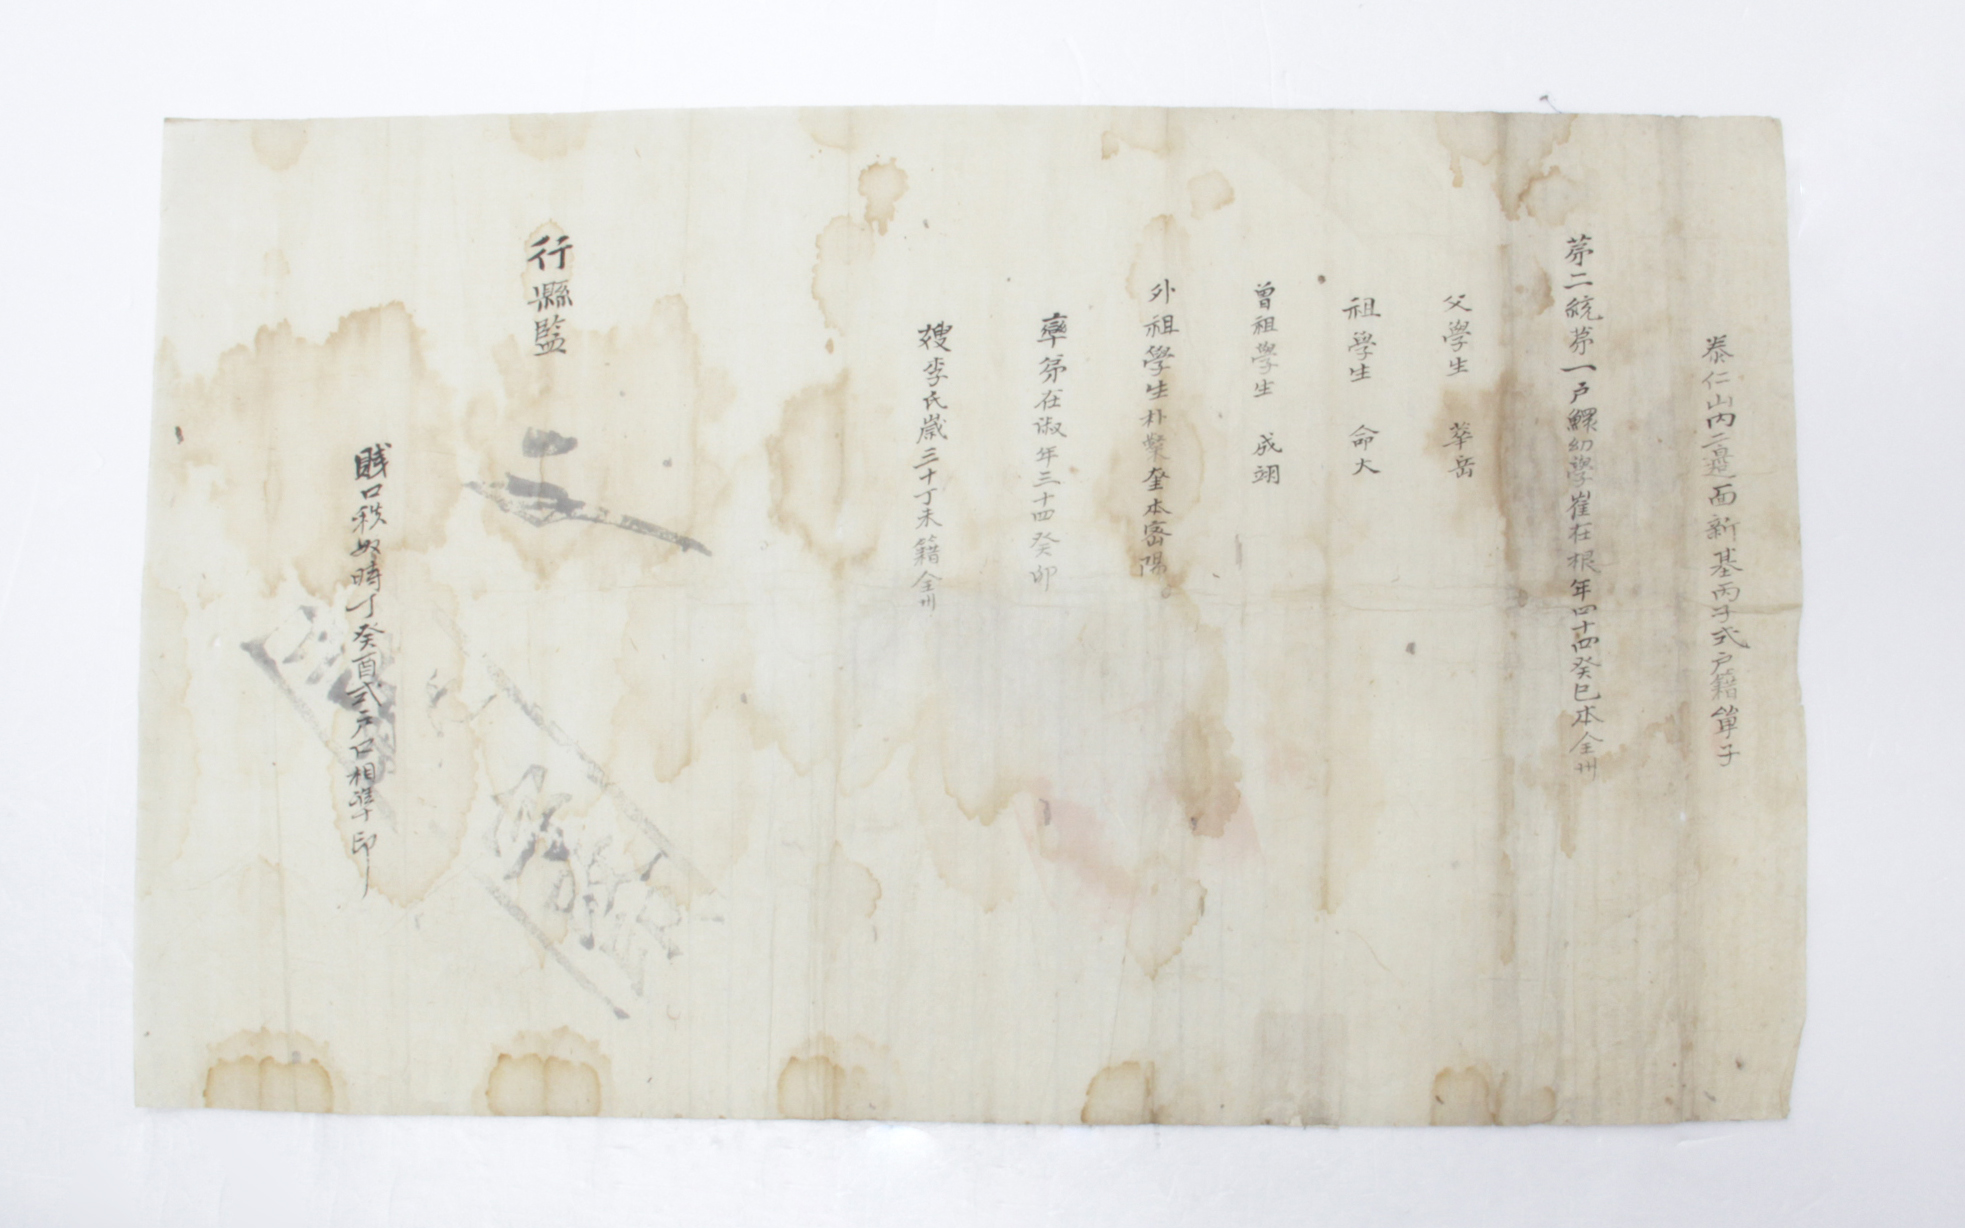 泰仁山內二邊面新基丙子式戶籍單子
第二統第一戶鰥幼學崔在根年四十四癸巳本全州
父學生 華岳
祖學生 命大
曾祖學生 成翊
外祖學生朴榮奎本密陽
率弟在淑年三十四癸卯
嫂李氏歲三十丁未籍全州
行縣監
賤口秩奴時丁癸酉式戶口相準印